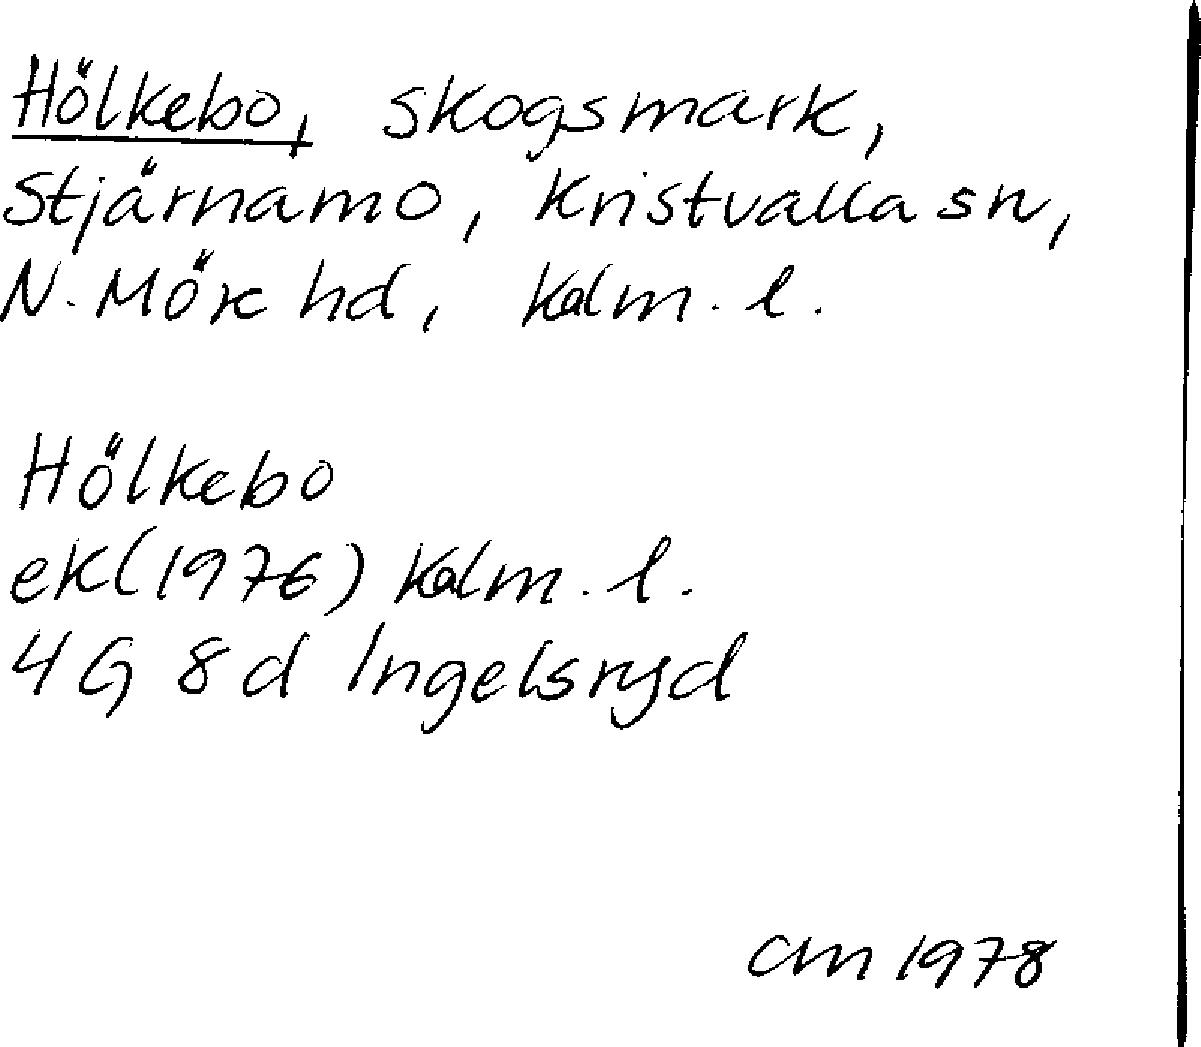 Hölkebo, skogsmark,
Stjärnamo, Kristvalla sn,
N. Möre hd, Kalm. l.
Hölkebo
ek (1976) Kalm. l.
4 G 8 d Ingelsryd
CM 1978